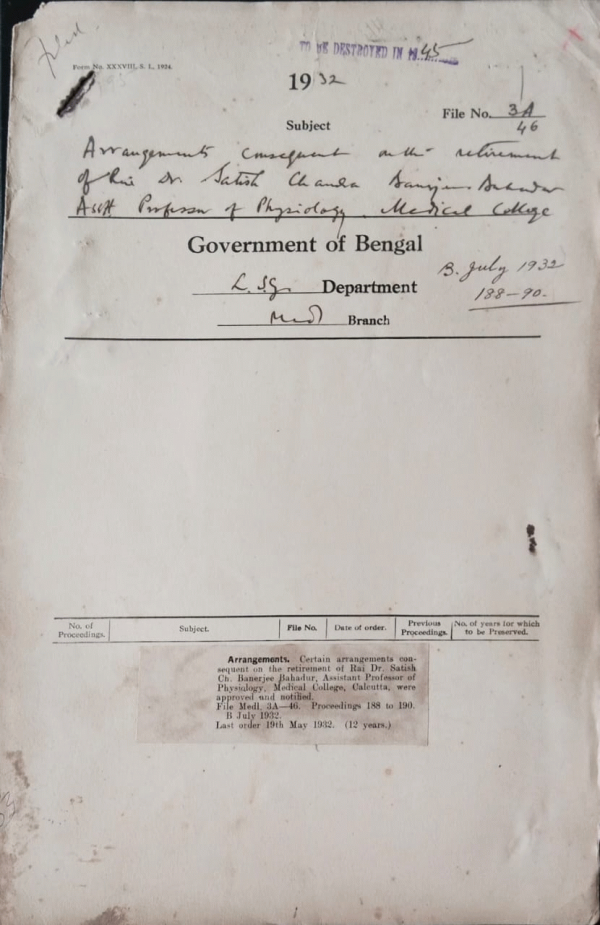 filed
Form No. XXXVIII, S. L., 1924.
TO BE DESTROYED IN 1945
1932
File No. 3A
46
Subject
Arrangements consequent on the retirement
of Rai Dr. Satish Chandra Banerjee Bahadur
Asstt Professor of Physiology, Medical College
Government of Bengal
B. July 1932
188-90.
L.S.G. Department
Medl Branch
No. of Proceedings. Subject. File No. Date of order. Previous Proceedings. No. of years for which to be Preserved.
Arrangements. Certain arrangements con-
sequent on the retirement of Rai Dr. Satish
Ch. Banerjee Bahadur, Assistant Professor of
Physiology, Medical College, Calcutta, were
approved and notified.
File Medl. 3A—46. Proceedings 188 to 190.
B July 1932.
Last order 19th May 1932. (12 years.)